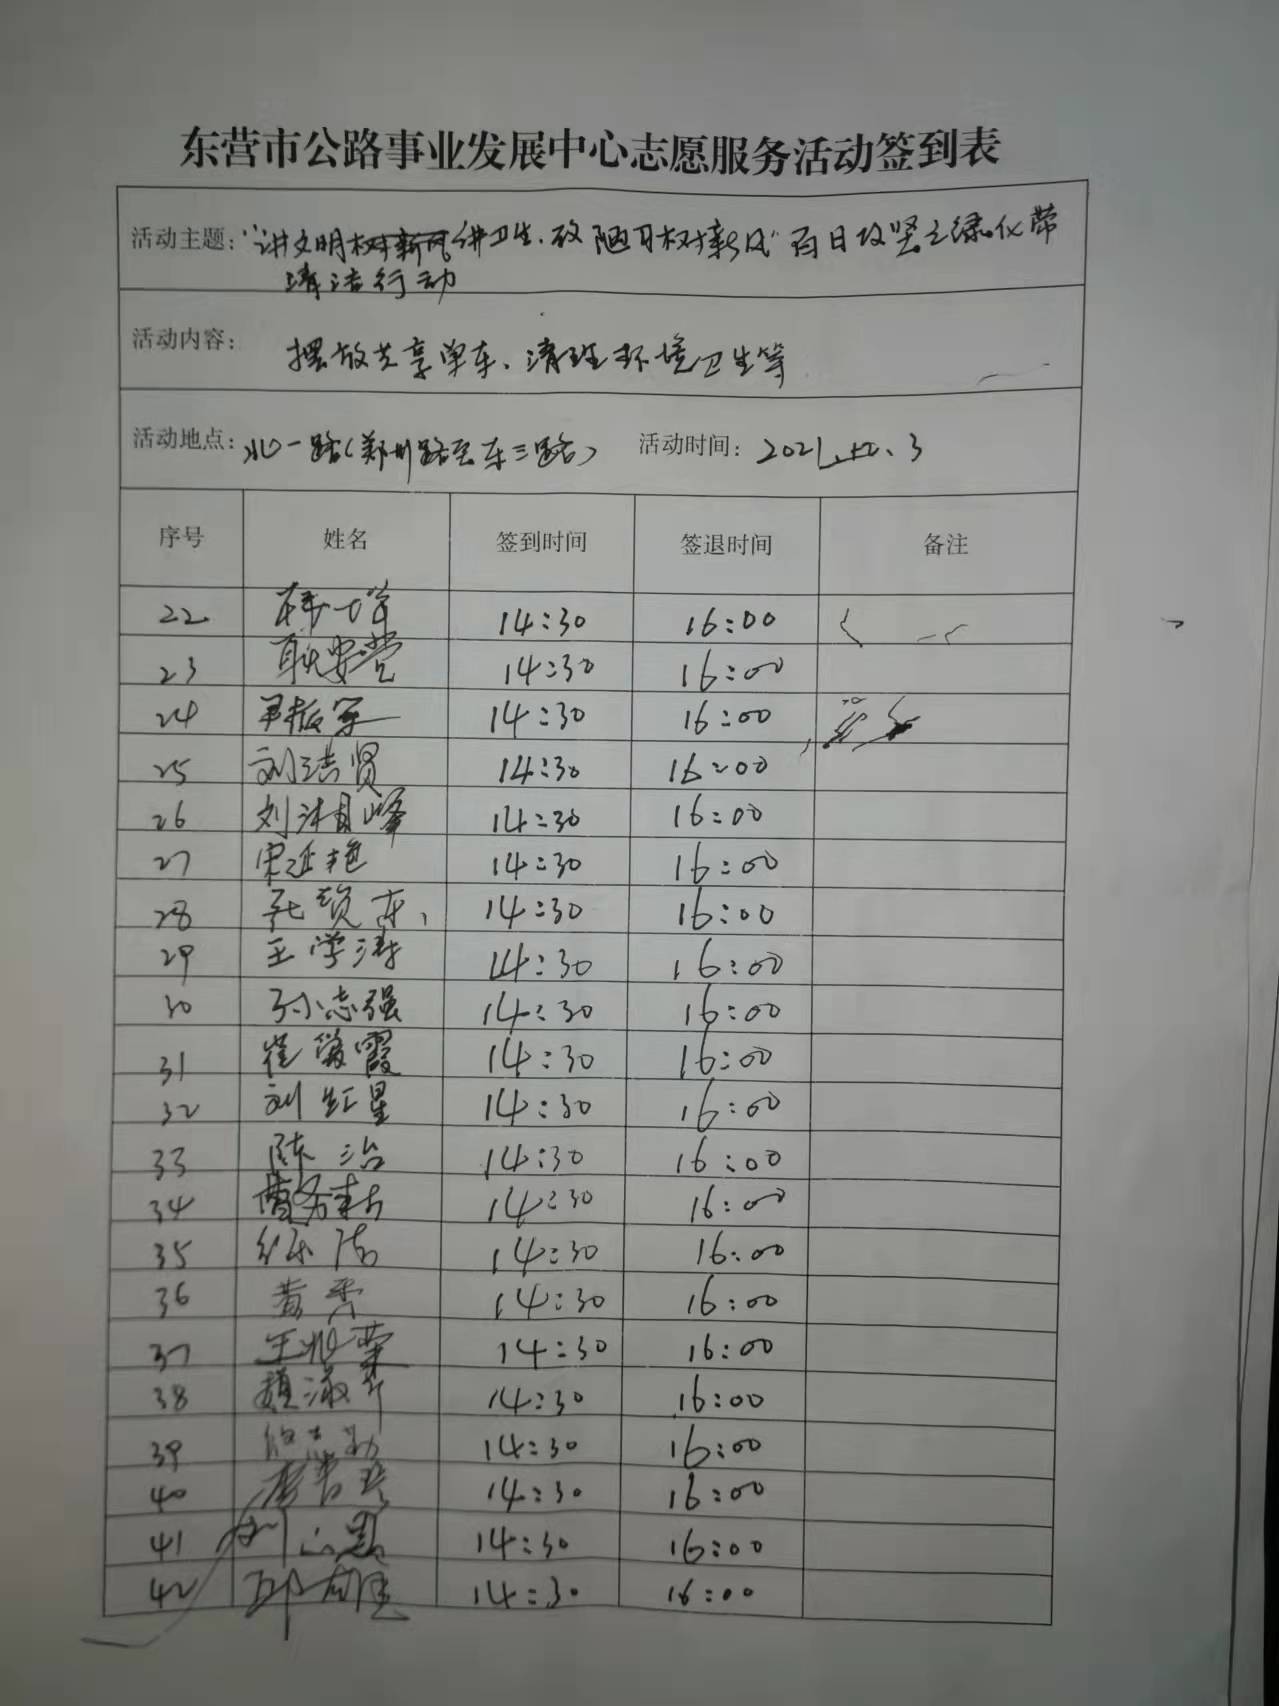 东营市公路事业发展中心志愿服务活动签到表
活动主题：“讲文明 讲卫生、改陋习树新风”百日攻坚之绿化带
清洁行动
活动内容：摆放共享单车、清理环境卫生等
活动地点：北一路（郑州路至东三路） 活动时间：2021. .3
序号 姓名 签到时间 签退时间 备注
22 14:30 16:00
23 耿安营 14:30 16:00
24 14:30 16:00
25 刘洁贤 14:30 16:00
26 刘 峰 14:30 16:00
27 宋延艳 14:30 16:00
28 14:30 16:00
29 王学涛 14:30 16:00
30 孙志强 14:30 16:00
31 崔 霞 14:30 16:00
32 刘红星 14:30 16:00
33 陈治 14:30 16:00
34 14:30 16:00
35 14:30 16:00
36 黄秀 14:30 16:00
37 14:30 16:00
38 14:30 16:00
39 14:30 16:00
40 14:30 16:00
41 14:30 16:00
42 14:30 16:00